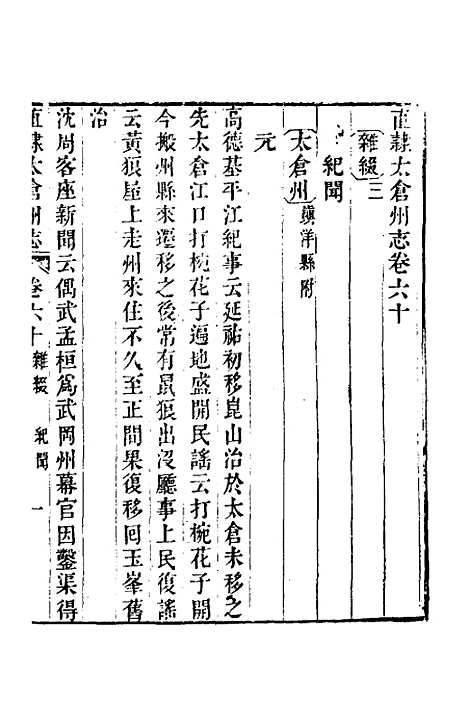 直隷太倉州志卷六十
雜綴三
紀聞
太倉州鎮洋縣附
元
高德基平江紀事云延祐初移崑山治於太倉未移之
先太倉江口打椀花子遍地盛開民謠云打椀花子開
今搬州縣來遷移之後常有鼠狼出沒廳事上民復謠
云黃狼屋上走州來住不久至正間果復移囘玉峯舊
治
沈周客座新聞云偶武孟桓爲武岡州幕官因鑿渠得
直隷太倉州志 卷六十雜綴 紀聞 一